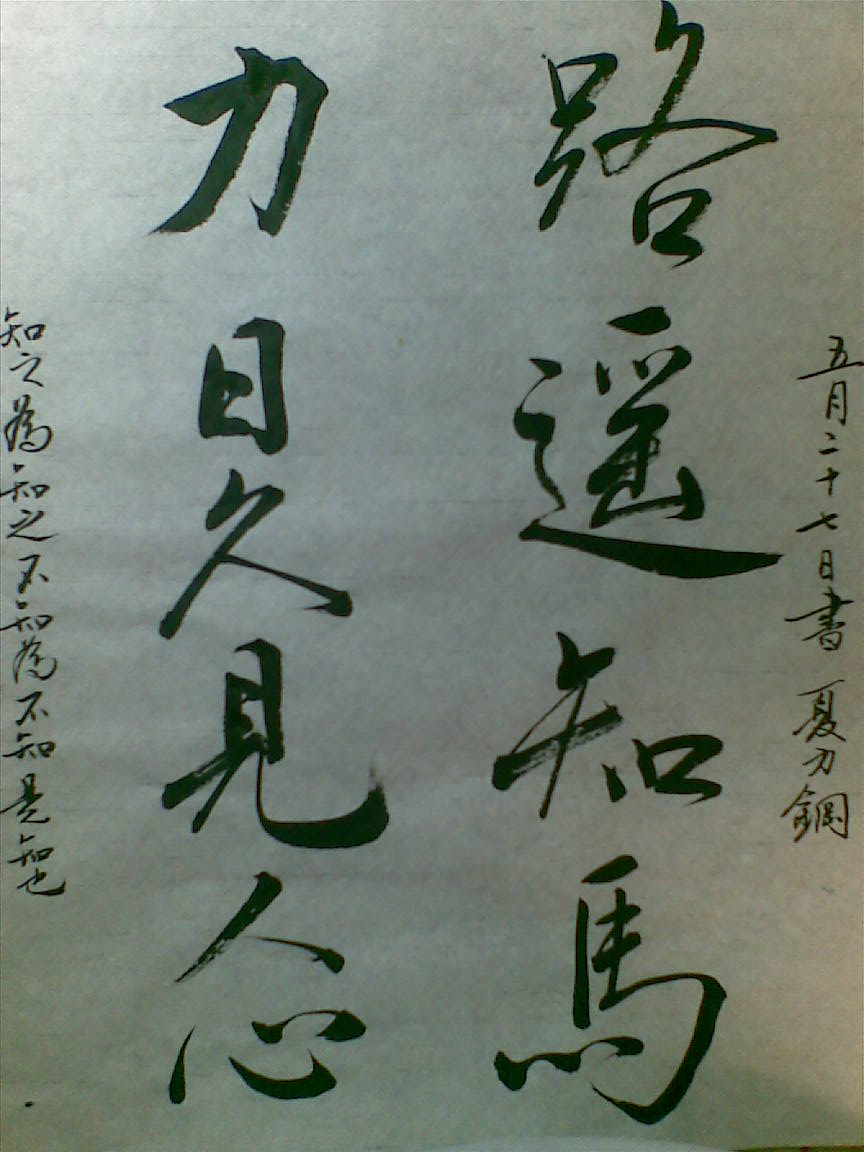 五月二十七日書 夏力鋼
路遥知馬
力日久見人心
知之為知之不知為不知是知也